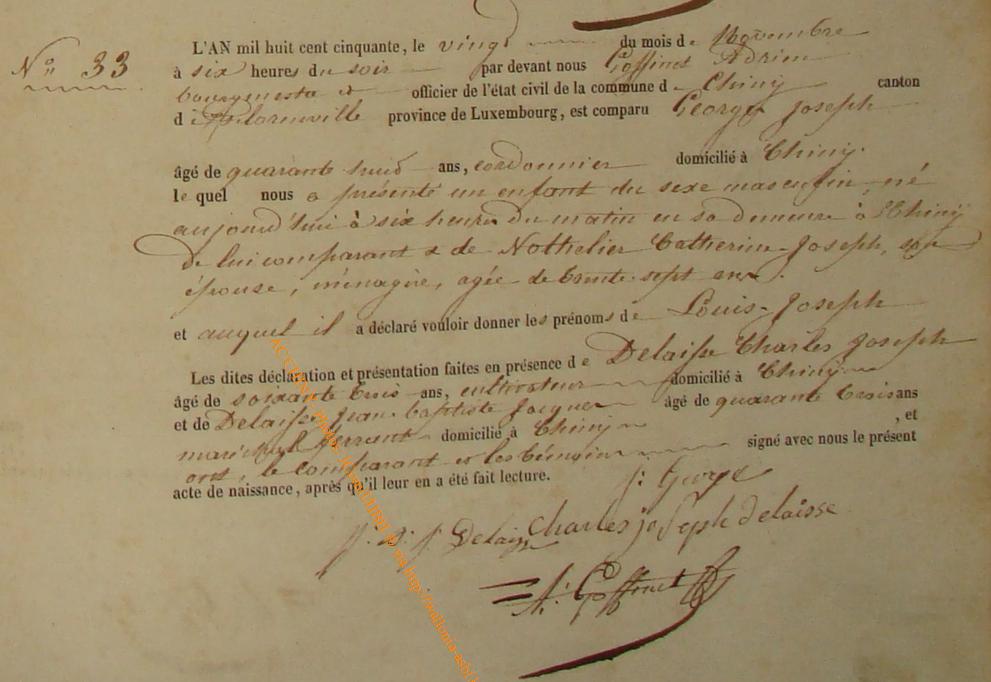 L'AN mil huit cent cinquante, le vingt du mois de Novembre
N° 33
à six heures du soir par devant nous Goffinet Adrien
bourgmestre et officier de l'état civil de la commune de Chiny canton
de Florenville province de Luxembourg, est comparu George Joseph
âgé de quarante huit ans, cordonnier domicilié à Chiny.
le quel nous a présenté un enfant du sexe masculin, né
aujourd'hui à six heures du matin en sa demeure à Chiny
de lui comparant & de Nothelier Catherine-Joseph, son
épouse, ménagère, agée de trente sept ans.
et auquel il a déclaré vouloir donner les prénoms de Louis-Joseph
Les dites déclaration et présentation faites en présence de Delaisse Charles Joseph
âgé de soixante trois ans, cultivateur domicilié à Chiny
et de Delaisse Jean-baptiste Jacques âgé de quarante trois ans
maréchal ferrant domicilié à Chiny, et
ont, le comparant et les témoins signé avec nous le présent
acte de naissance, après qu'il leur en a été fait lecture.
J: George
J. B. J. Delaisse Charles joseph delaisse
A: Goffinet